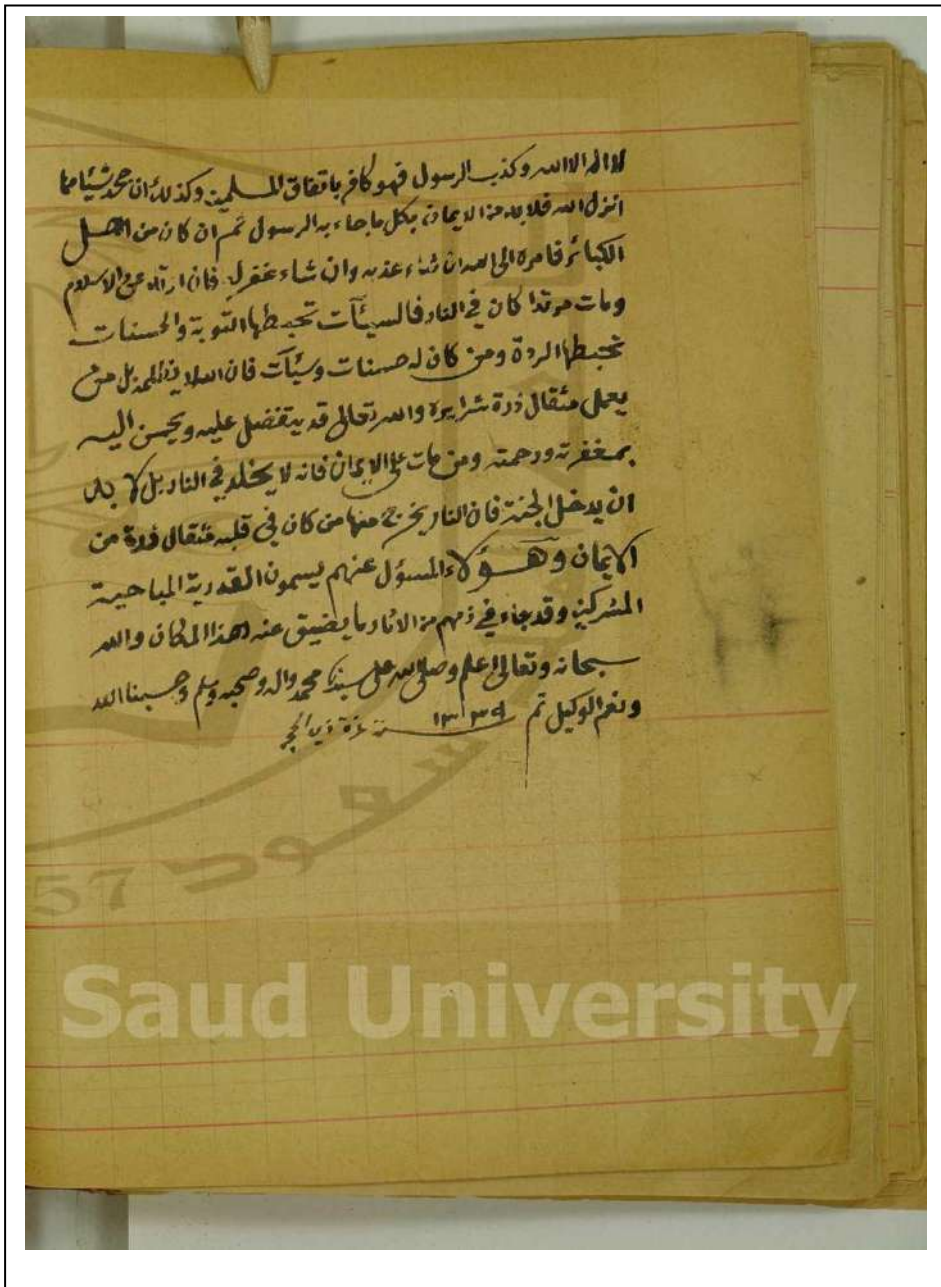 لا اله الا الله وكذب الرسول فهو كافر باتفاق المسلمين وكذلك ان جحد شيئا مما
انزل الله فلا بد من الايمان بكل ما جاء به الرسول ثم ان كان من اهل
الكبائر فامره الى الله ان شاء عذبه وان شاء غفر له فان ارتد عن الاسلام
ومات مرتدا كان في النار فالسيئآت تحبطها التوبة والحسنات
تحبطها الردة ومن كان له حسنات وسيئآت فان الله لا يظلمه بل من
يعمل مثقال ذرة شرا يره والله تعالى قد يتفضل عليه ويحسن اليه
بمغفرته ورحمته ومن مات على الايمان فانه لا يخلد في النار بل لا بد
ان يدخل الجنة فان النار يخرج منها من كان في قلبه مثقال ذرة من
الايمان وهؤلاء المسؤل عنهم يسمون القدرية المباحية
المشركين وقد جاء في ذمهم من الاثار ما يضيق عنه هذا المكان والله
سبحانه وتعالى اعلم وصلى الله على سيدنا محمد واله وصحبه وسلم وحسبنا الله
ونعم الوكيل تم سنة
سعود
57
Saud University